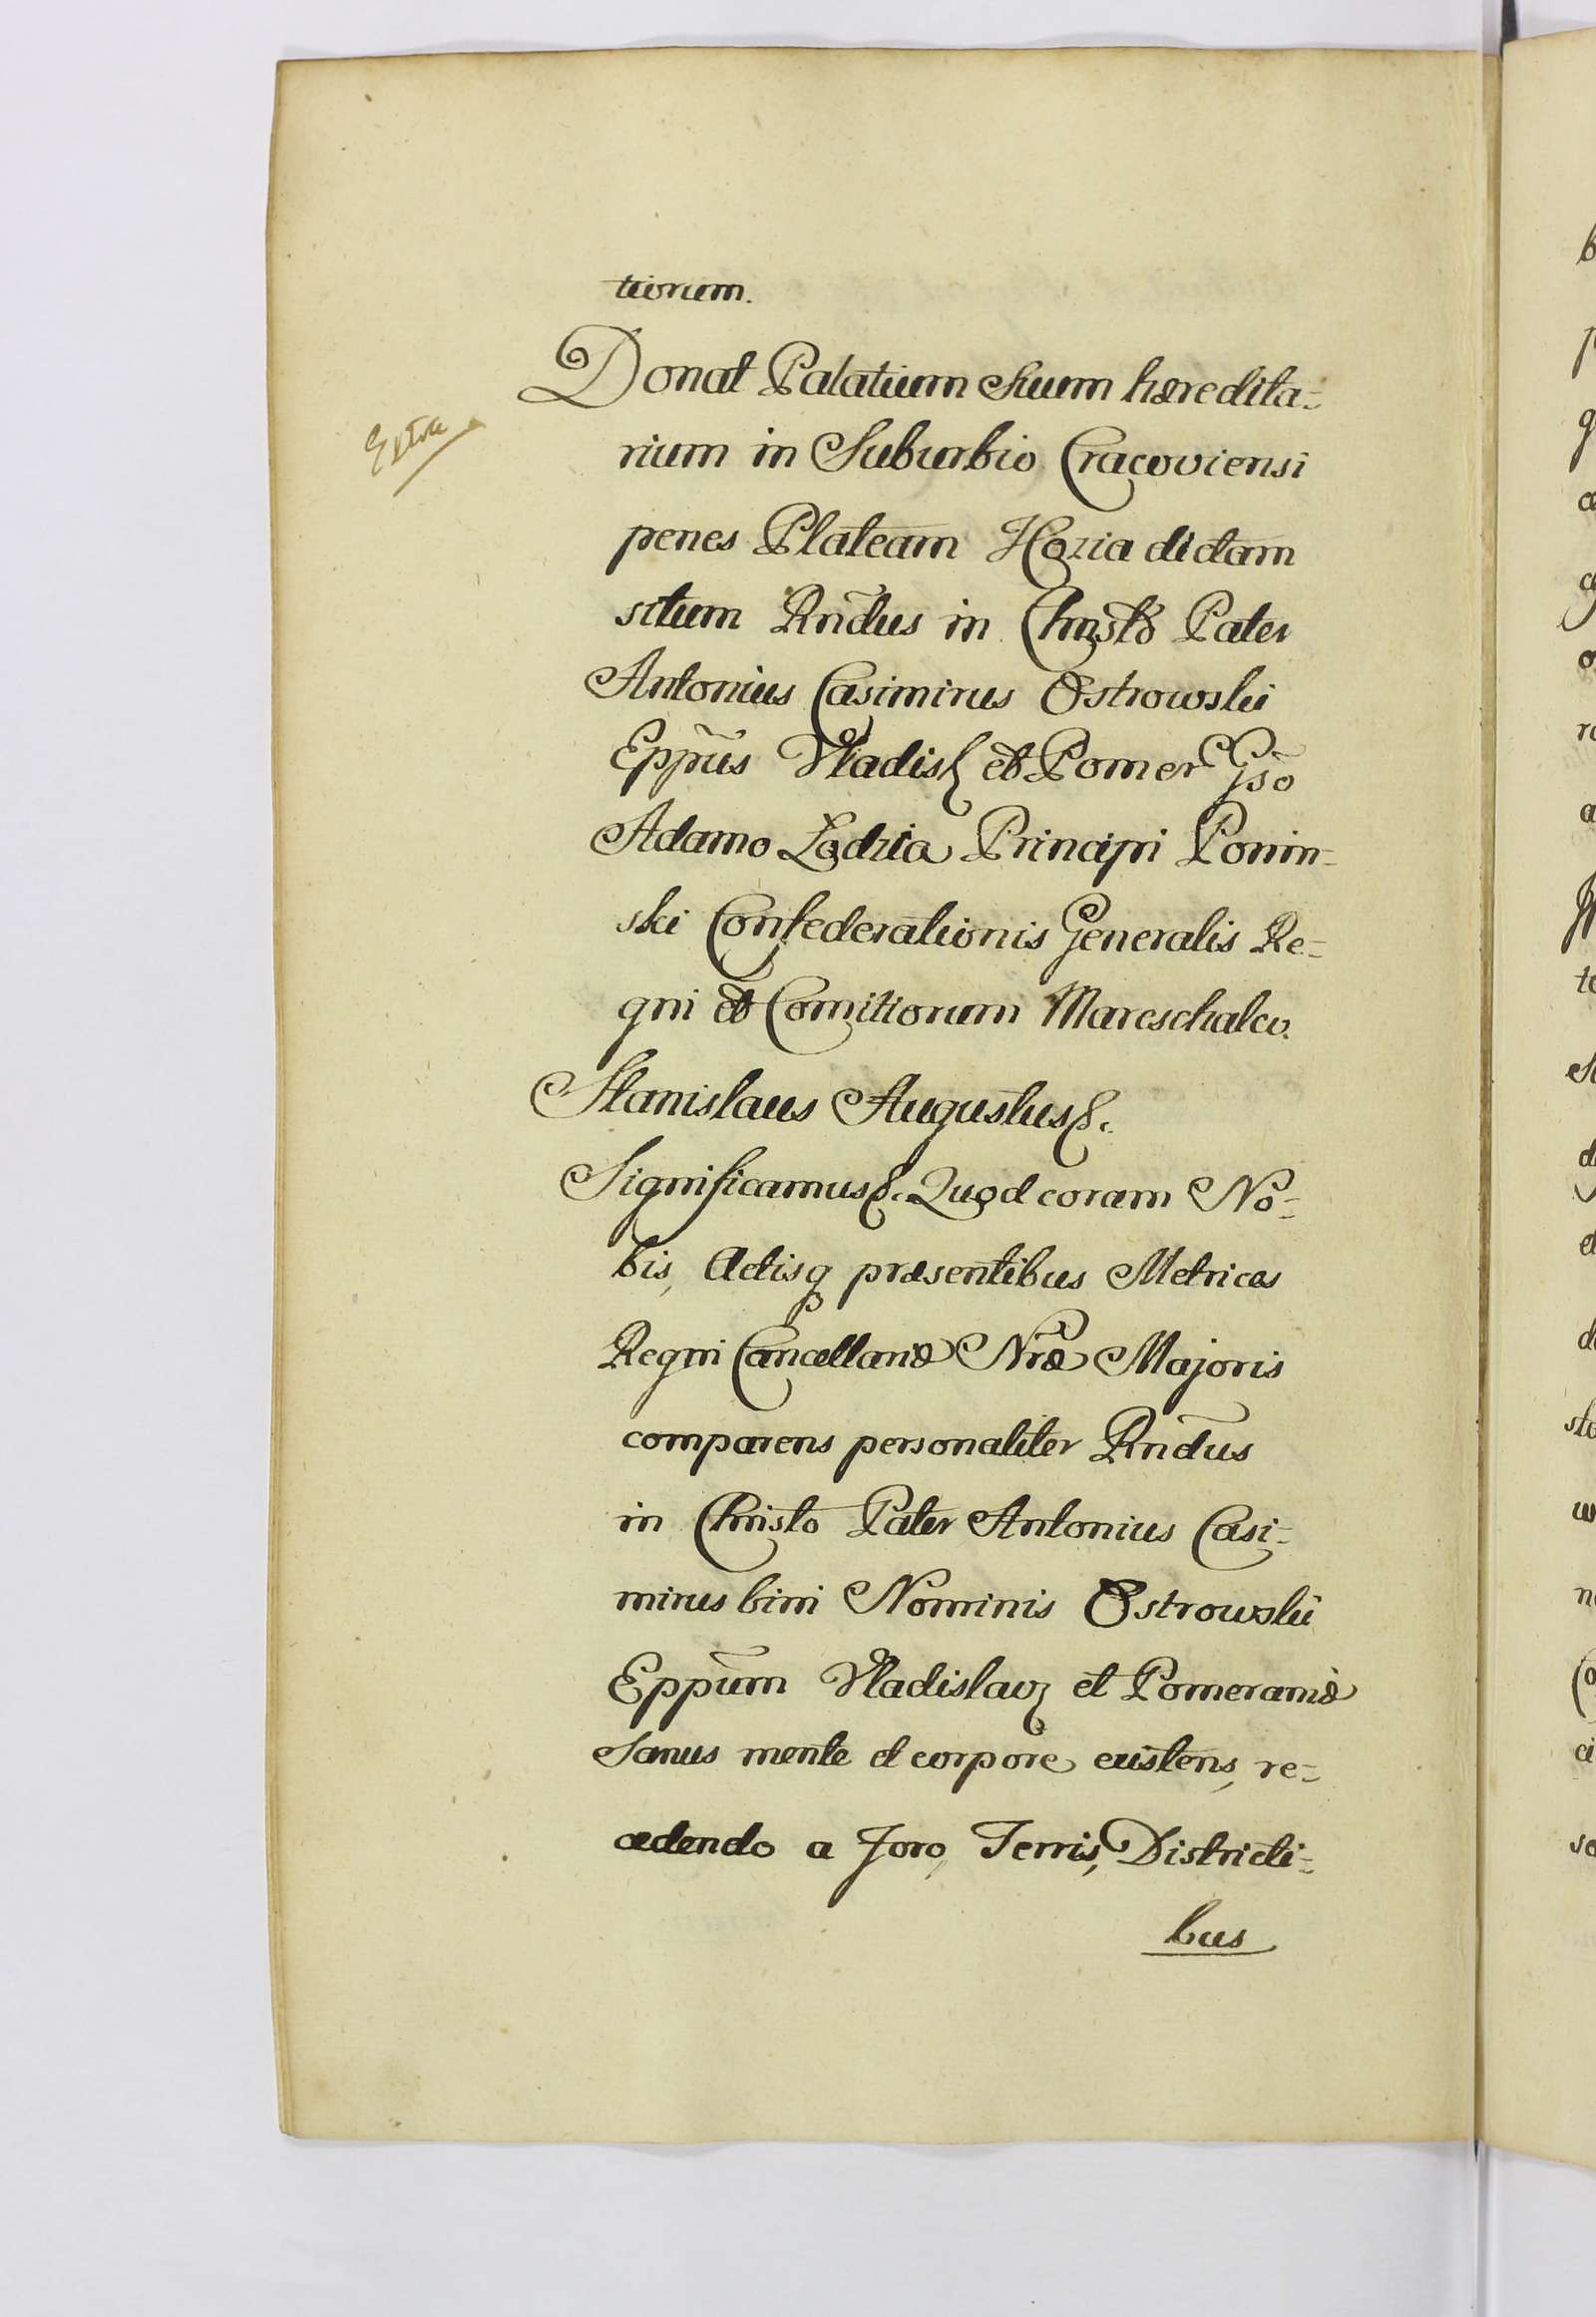 tiorum.
Donat Palatium Suum hæredita=
Extra
rium in Suburbio Cracoviensi
penes Plateam Hozia dictam
situm Rn̄dus in Christo Pater
Antonius Casimirus Ostrowski
Epp̄us Vladisl et Pomer Gs̄o
Adamo Lodzia Principi Ponin=
ski Confederationis Generalis Re=
gni et Comitiorum Mareschalco.
Stanislaus Augustus &.
Significamus &. Quod coram No=
bis, Actisq præsentibus Metrices
Regni Cancellariæ Nr̄æ Majoris
comparens personaliter Rn̄dus
in Christo Pater Antonius Casi=
mirus bini Nominis Ostrowski
Epp̄um Vladislav et Pomeraniæ
Sanus mente et corpore existens, re=
cedendo a Foro, Terris, Districti=
bus